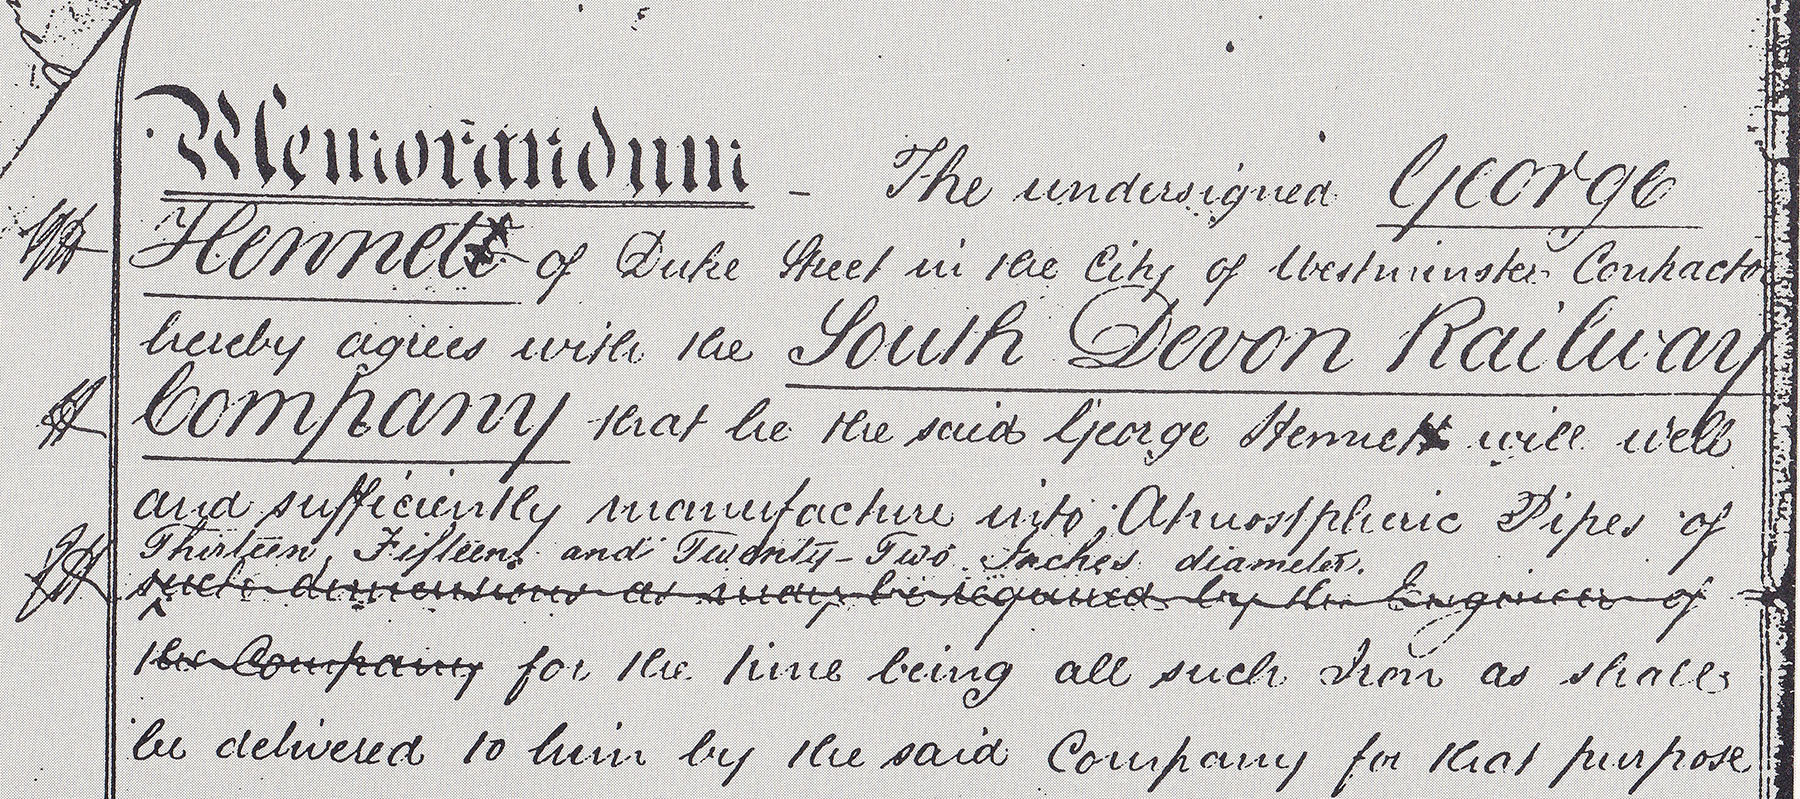 Memorandum - The undersigned George
Hennet of Duke Street in the City of Westminster Contractor
hereby agrees with the South Devon Railway
Company that he the said George Hennet will well
and sufficiently manufacture into Atmospheric Pipes of
Thirteen, Fifteen and Twenty-Two Inches diameter.
such dimensions as may be required by the Engineer of
the Company for the time being all such Iron as shall
be delivered to him by the said Company for that purpose